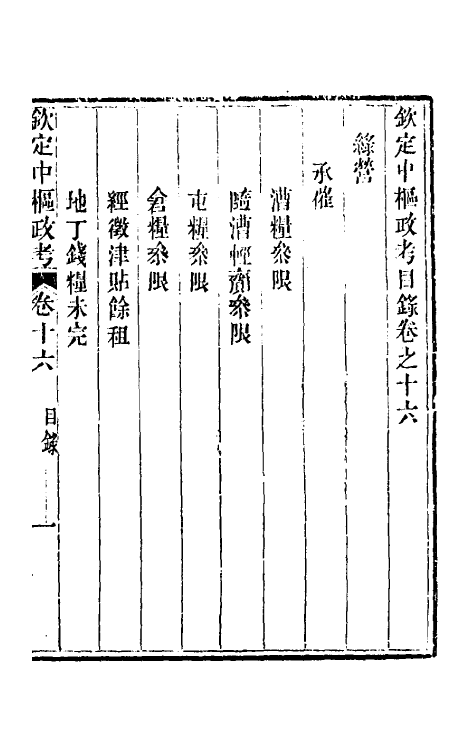 欽定中樞政考目錄卷之十六
綠營
承催
漕糧叅限
隨漕輕齎叅限
屯糧叅限
倉糧叅限
經徵津貼餘租
地丁錢糧未完
欽定中樞政考 卷十六 目錄 一